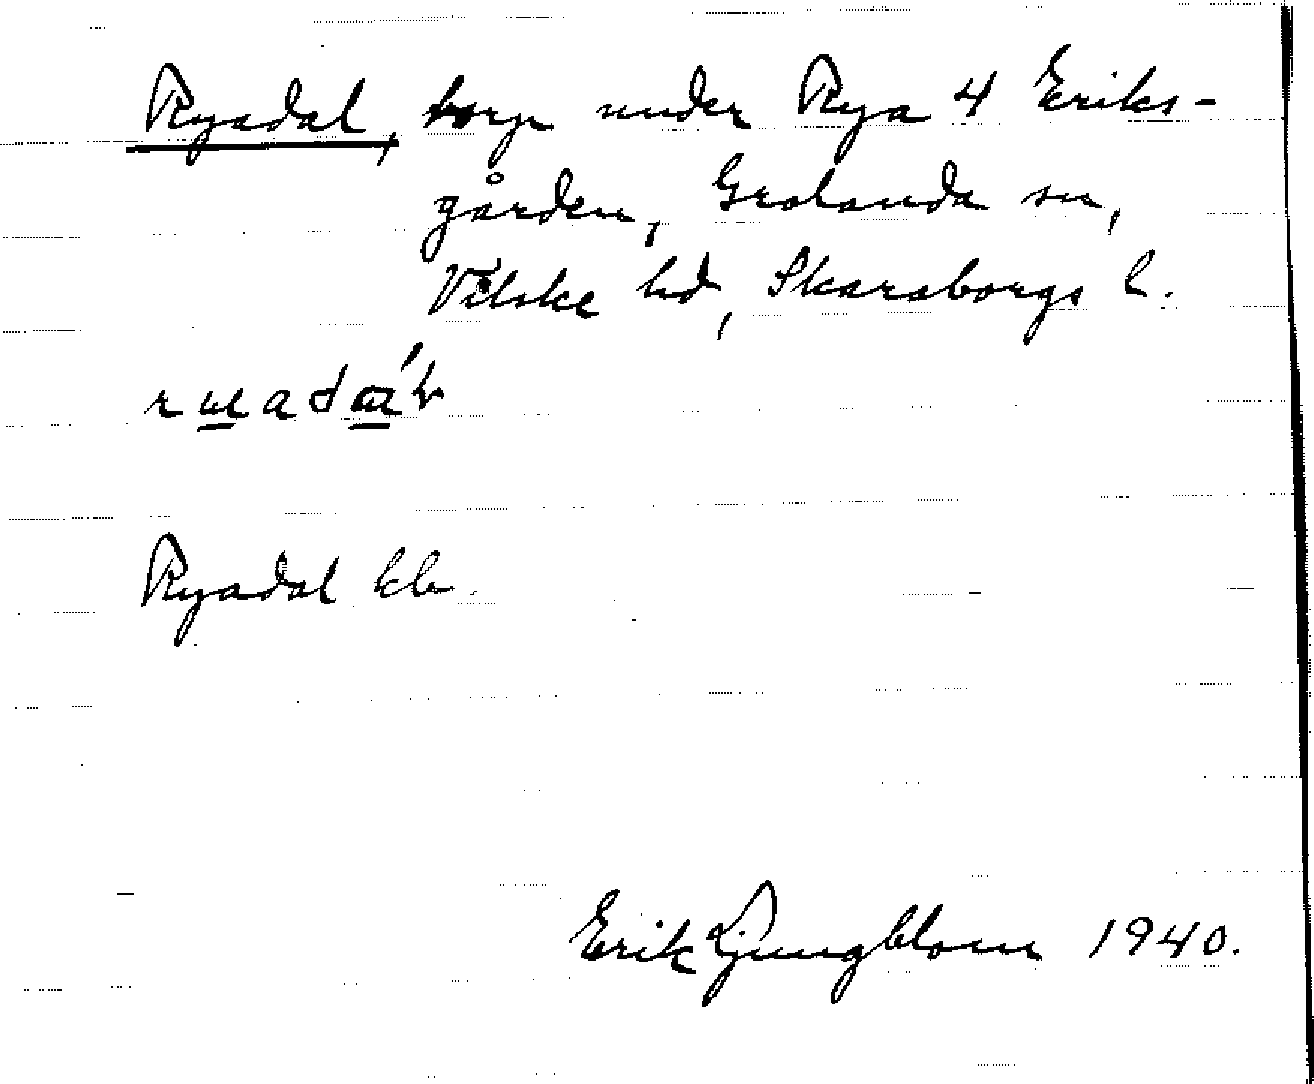 Ryadal, torp under Rya 4 Eriks-
gården, Grolanda sn,
Vilske hd, Skaraborgs l.
Ryadal
Erik Ljungblom 1940.